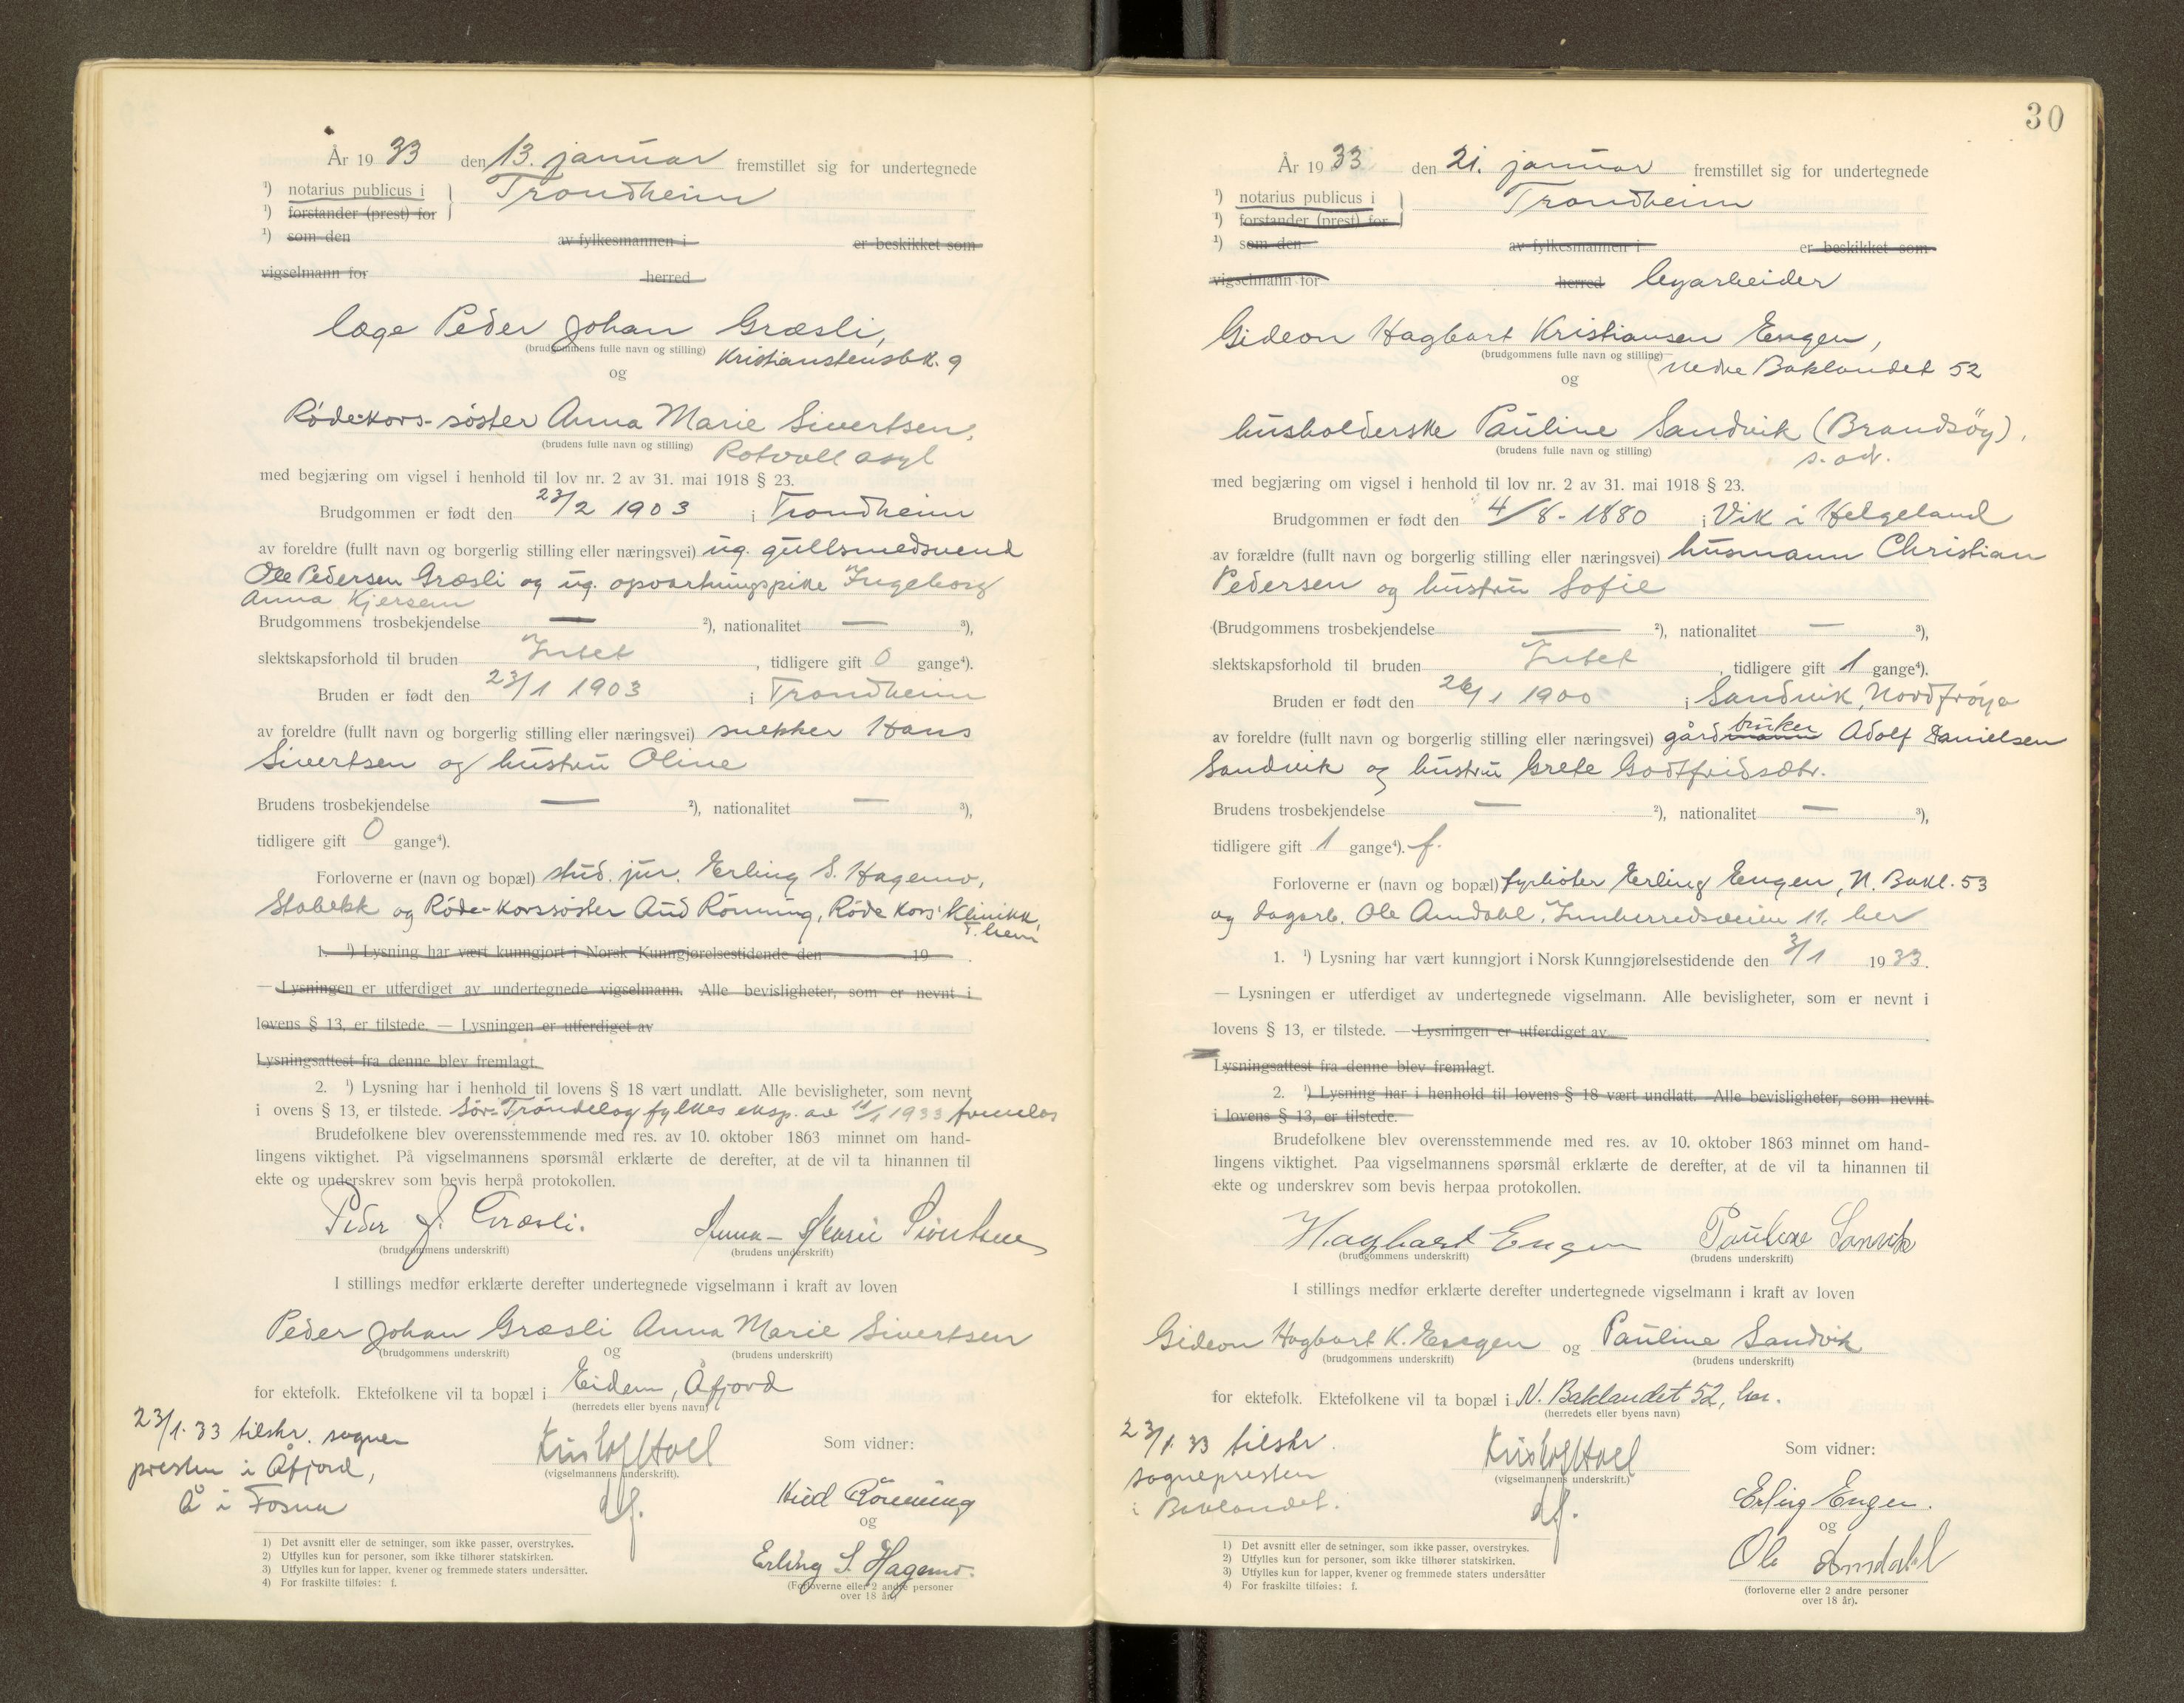 År 1933 den 13. januar fremstillet sig for undertegnede
¹) notarius publicus i } Trondheim
¹) forstander (prest) for
¹) som den av fylkesmannen i er beskikket som
vigselmann for herred
læge Peder Johan Græsli,
(brudgommens fulle navn og stilling) Kristianstensbk. 9
og
Røde-kors-søster Anna Marie Sivertsen,
(brudens fulle navn og stilling) Rotvoll asyl
med begjæring om vigsel i henhold til lov nr. 2 av 31. mai 1918 § 23.
Brudgommen er født den 23/2 1903 i Trondheim
av foreldre (fullt navn og borgerlig stilling eller næringsvei) ug. gullsmedsvend
Ole Pedersen Græsli og ug. opvartningspike Ingeborg
Anna Kjersem
Brudgommens trosbekjendelse — ²), nationalitet — ³),
slektskapsforhold til bruden Intet, tidligere gift 0 gange⁴).
Bruden er født den 23/1 1903 i Trondheim
av foreldre (fullt navn og borgerlig stilling eller næringsvei) snekker Hans
Sivertsen og hustru Oline
Brudens trosbekjendelse — ²), nationalitet — ³),
tidligere gift 0 gange⁴).
Forloverne er (navn og bopæl) stud. jur. Erling S. Hagemo,
Stabekk og Røde-korssøster Aud Rönning, Røde Kors' Klinikk,
T.heim
1. ¹) Lysning har vært kunngjort i Norsk Kunngjørelsestidende den 19 .
— Lysningen er utferdiget av undertegnede vigselmann. Alle bevisligheter, som er nevnt i
lovens § 13, er tilstede. — Lysningen er utferdiget av
Lysningsattest fra denne blev fremlagt.
2. ¹) Lysning har i henhold til lovens § 18 vært undlatt. Alle bevisligheter, som nevnt
i ovens § 13, er tilstede. Sør-Trøndelag fylkes eksp. av 11/1 1933 fremlas
Brudefolkene blev overensstemmende med res. av 10. oktober 1863 minnet om hand-
lingens viktighet. På vigselmannens spørsmål erklærte de derefter, at de vil ta hinannen til
ekte og underskrev som bevis herpå protokollen.
Peder J. Græsli. Anna-Marie Sivertsen
(brudgommens underskrift) (brudens underskrift)
I stillings medfør erklærte derefter undertegnede vigselmann i kraft av loven
Peder Johan Græsli og Anna Marie Sivertsen
(brudgommens underskrift) (brudens underskrift)
for ektefolk. Ektefolkene vil ta bopæl i Eidem, Åfjord
(herredets eller byens navn)
23/1.33 tilskr. sogne-
presten i Åfjord,
Å i Fosna
(vigselmannens underskrift).
Som vidner:
Aud Rönning
og
Erling S. Hagemo.
(Forloverne eller 2 andre personer
over 18 år)
1) Det avsnitt eller de setninger, som ikke passer, overstrykes.
2) Utfylles kun for personer, som ikke tilhører statskirken.
3) Utfylles kun for lapper, kvener og fremmede staters undersåtter.
4) For fraskilte tilføies: f.
30
År 1933 den 21. januar fremstillet sig for undertegnede
¹) notarius publicus i } Trondheim
¹) forstander (prest) for
¹) som den av fylkesmannen i er beskikket som
vigselmann for herred løsarbeider
Gideon Hagbart Kristiansen Engen,
(brudgommens fulle navn og stilling) Nedre Baklandet 52
og
husholderske Pauline Sandvik (Brandsøy),
(brudens fulle navn og stilling) s. adr.
med begjæring om vigsel i henhold til lov nr. 2 av 31. mai 1918 § 23.
Brudgommen er født den 4/8-1880 i Vik i Helgeland
av forældre (fullt navn og borgerlig stilling eller næringsvei) husmann Christian
Pedersen og hustru Sofie
(Brudgommens trosbekjendelse — ²), nationalitet — ³),
slektskapsforhold til bruden Intet, tidligere gift 1 gange⁴).
Bruden er født den 26/1 1900 i Sandvik, Nordfrøya
av foreldre (fullt navn og borgerlig stilling eller næringsvei) gårdmann bruker Adolf Danielsen
Sandvik og hustru Grete Godtfridsdtr.
Brudens trosbekjendelse — ²), nationalitet — ³),
tidligere gift 1 gange⁴). f.
Forloverne er (navn og bopæl) fyrbøter Erling Engen, N. Bakl. 53
og dagarb. Ole Amdahl, Innherredsveien 11, her
1. ¹) Lysning har vært kunngjort i Norsk Kunngjørelsestidende den 3/1 1933.
— Lysningen er utferdiget av undertegnede vigselmann. Alle bevisligheter, som er nevnt i
lovens § 13, er tilstede. — Lysningen er utferdiget av
Lysningsattest fra denne blev fremlagt.
2. ¹) Lysning har i henhold til lovens § 18 vært undlatt. Alle bevisligheter, som nevnt
i lovens § 13, er tilstede.
Brudefolkene blev overensstemmende med res. av 10. oktober 1863 minnet om hand-
lingens viktighet. Paa vigselmannens spørsmål erklærte de derefter, at de vil ta hinannen til
ekte og underskrev som bevis herpaa protokollen.
Hagbart Engen Pauline Sanvik
(brudgommens underskrift) (brudens underskrift)
I stillings medfør erklærte derefter undertegnede vigselmann i kraft av loven
Gideon Hagbart K. Engen og Pauline Sandvik
(brudgommens underskrift) (brudens underskrift)
for ektefolk. Ektefolkene vil ta bopæl i N. Baklandet 52, her.
(herredets eller byens navn)
23/1 33 tilskr.
sognepresten
i Baklandet.
(vigselmannens underskrift.)
Som vidner:
Erling Engen.
og
Ole Amdahl
(forloverne eller 2 andre personer
over 18 år).
1) Det avsnitt eller de setninger, som ikke passer, overstrykes.
2) Utfylles kun for personer, som ikke tilhører statskirken.
3) Utfylles kun for lapper, kvener og fremmede staters undersåtter
4) For fraskilte tilføies: f.